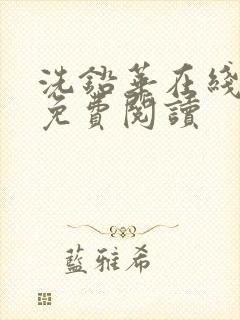 洗鉛華在綫
免費閱讀
藍雅希